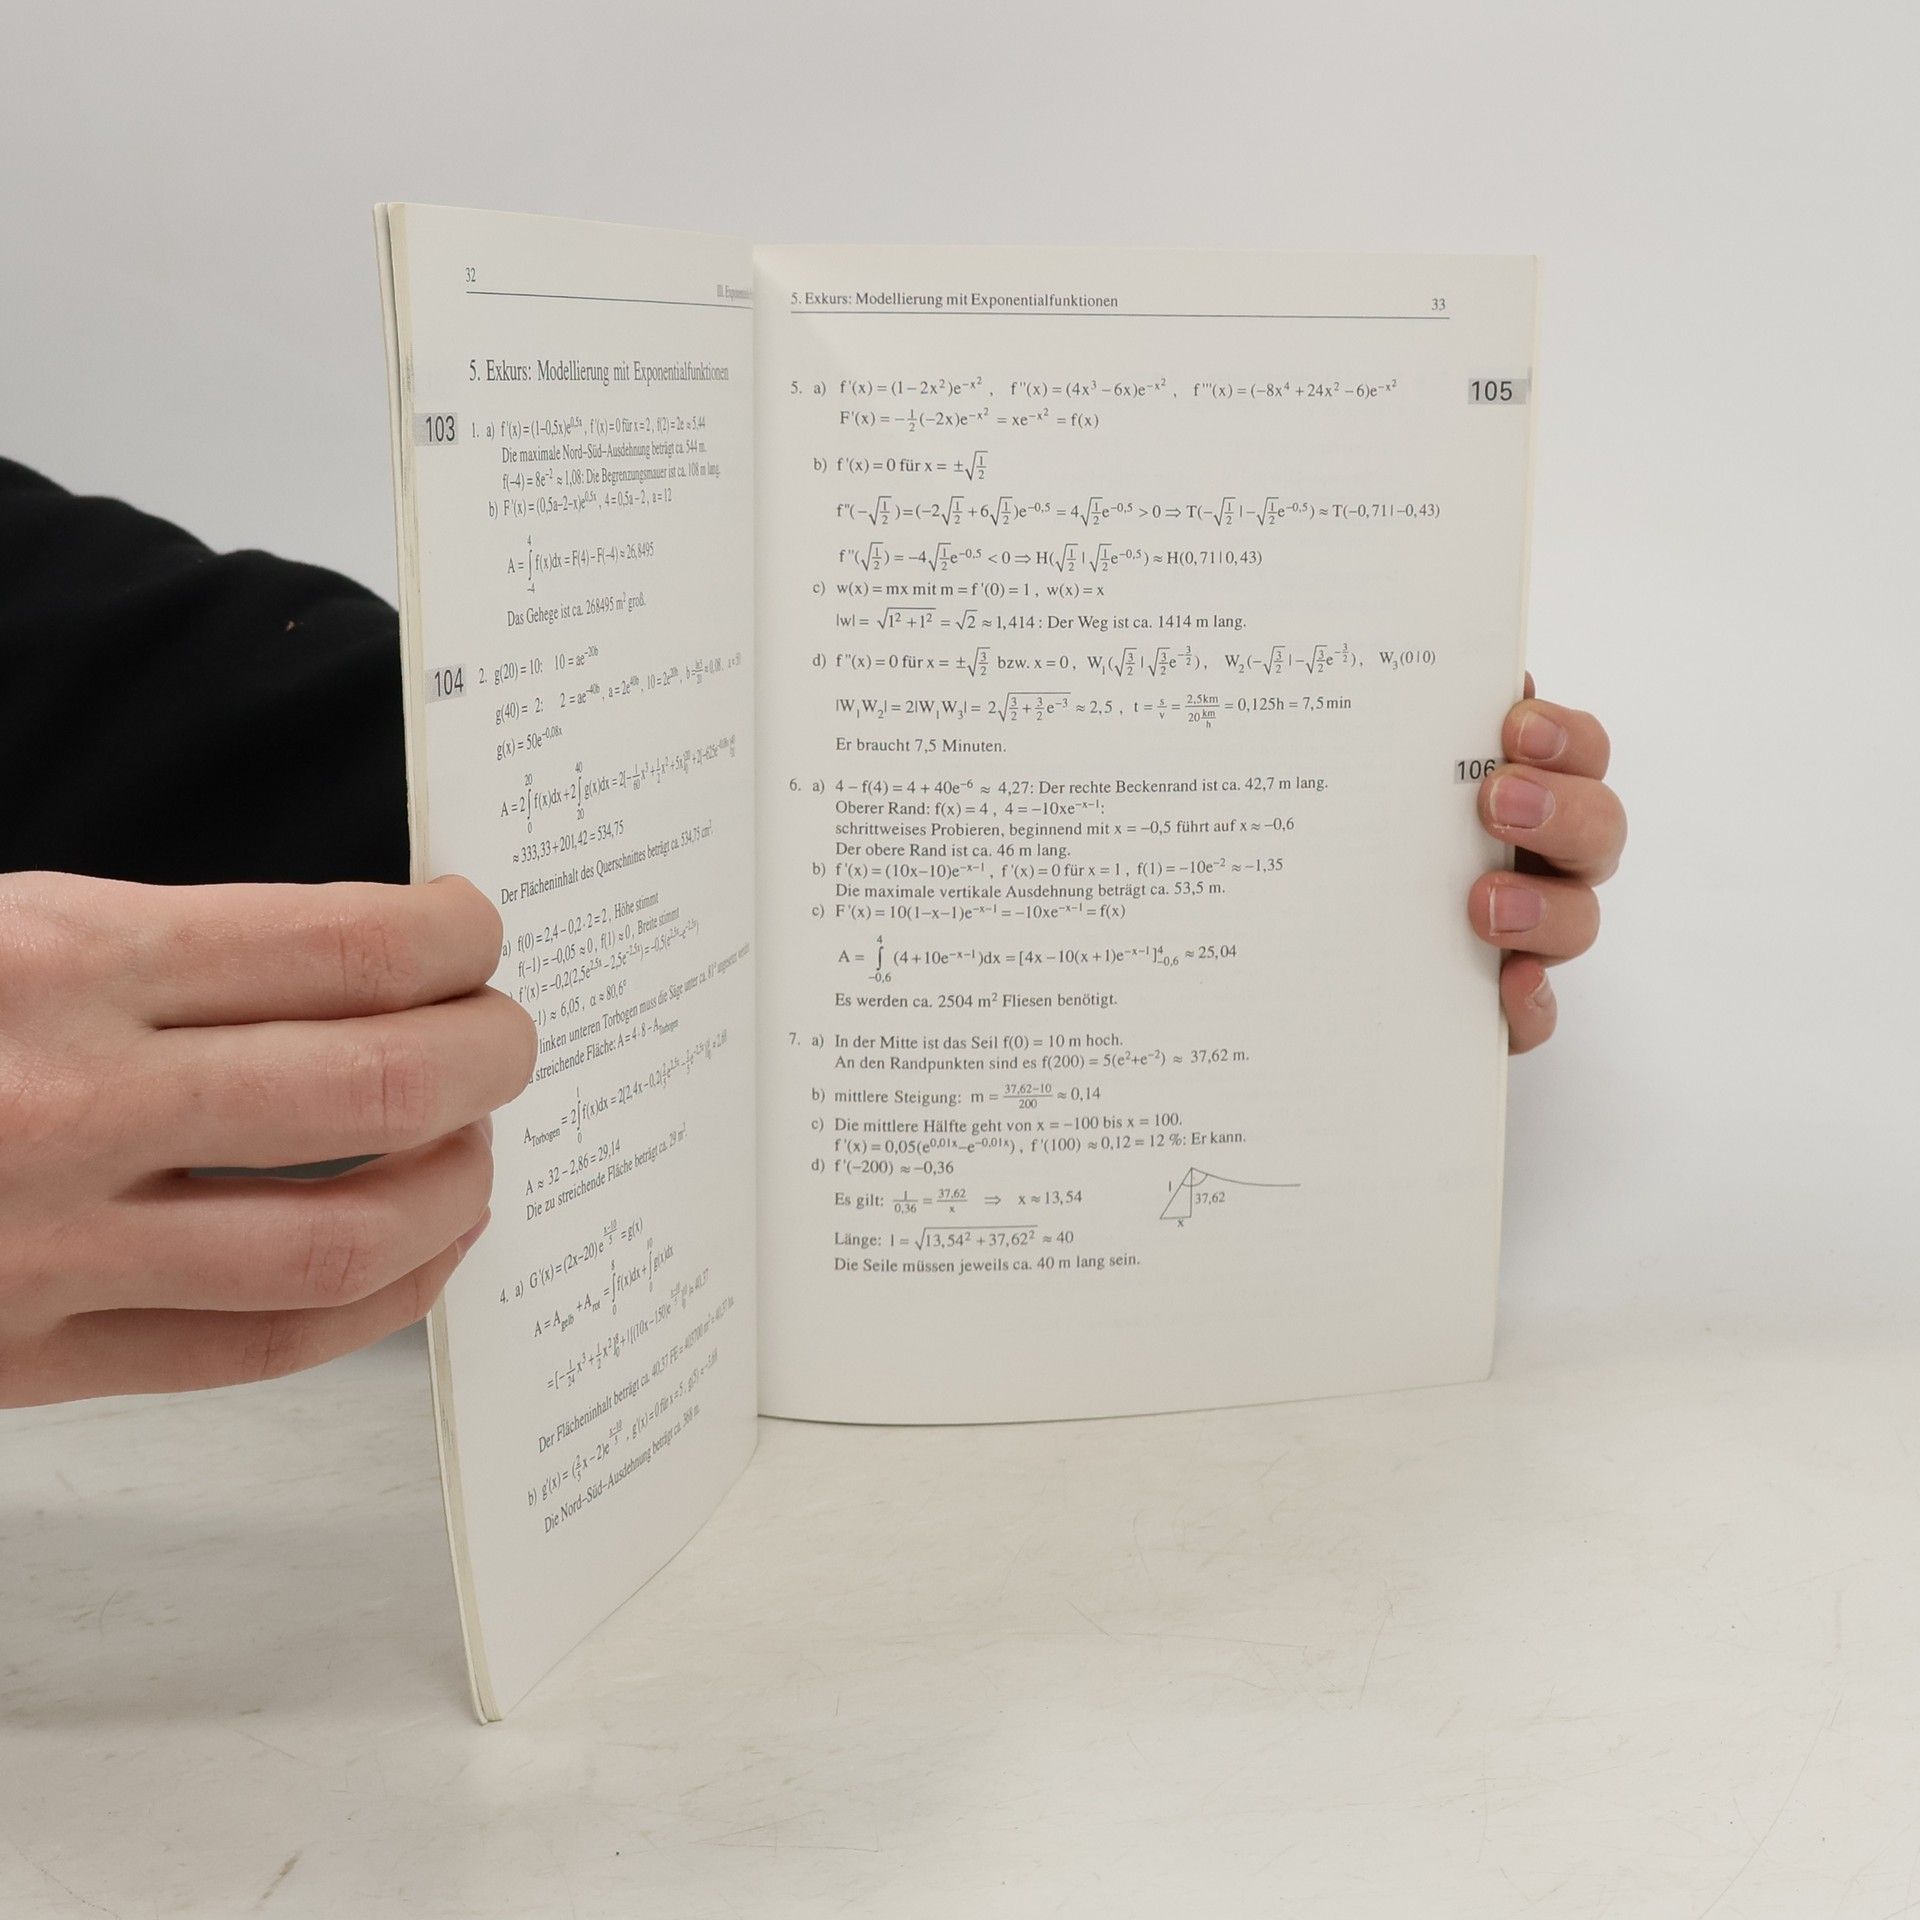 32
5. Exkurs: Modellierung mit Exponentialfunktionen
103
1. a) f'(x) = (1–0,5x)e^{0,5x}, f'(x) = 0 für x = 2, f(2) = 2e ≈ 5,44
Die maximale Nord–Süd–Ausdehnung beträgt ca. 544 m.
f(–4) = 8e^{–2} ≈ 1,08: Die Begrenzungsmauer ist ca. 108 m lang.
b) F'(x) = (0,5a–2–x)e^{0,5x}, 4 = 0,5a – 2, a = 12
A = ∫_{–4}^{4} f(x)dx = F(4) – F(–4) ≈ 26,8495
Das Gehege ist ca. 268495 m² groß.
104
2. g(20) = 10: 10 = ae^{–20b}
g(40) = 2: 2 = ae^{–40b}, a = 2e^{40b}, 10 = 2e^{20b},
g(x) = 50e^{–0,08x}
A = 2∫_{0}^{20} f(x)dx + 2∫_{20}^{40} g(x)dx
≈ 333,33 + 201,42 = 534,75
Der Flächeninhalt des Querschnittes beträgt ca. 534,75 cm².
a) f(0) = 2,4 – 0,2 · 2 = 2, Höhe stimmt
f(–1) = –0,05 ≈ 0, f(1) ≈ 0, Breite stimmt
f'(x) = –0,2(2,5e^{2,5x} – 2,5e^{–2,5x}) = –0,5(e^{2,5x} – e^{–2,5x})
–1) ≈ 6,05, α ≈ 80,6°
linken unteren Torbogen muss die Säge unter ca. 81° angesetzt werden
streichende Fläche: A = 4 · 8 – A_{Torbogen}
A_{Torbogen} = 2∫_{0}^{1} f(x)dx
A ≈ 32 – 2,86 = 29,14
Die zu streichende Fläche beträgt ca. 29 m².
4. a) G'(x) = (2x–20)e^{\frac{x–10}{5}} = g(x)
A = A_{gelb} + A_{rot} = ∫_{0}^{8} f(x)dx + ∫_{0}^{10} g(x)dx
Der Flächeninhalt beträgt ca. 40,37 FE
b) g'(x) = (\frac{2}{5}x – 2)e^{\frac{x–10}{5}}, g'(x) = 0 für x = 5,
Die Nord–Süd–Ausdehnung beträgt ca. 368 m.
5. Exkurs: Modellierung mit Exponentialfunktionen 33
105
5. a) f'(x) = (1 – 2x²)e^{–x²}, f''(x) = (4x³ – 6x)e^{–x²}, f'''(x) = (–8x⁴ + 24x² – 6)e^{–x²}
F'(x) = –\frac{1}{2}(–2x)e^{–x²} = xe^{–x²} = f(x)
b) f'(x) = 0 für x = ±√\frac{1}{2}
f''(–√\frac{1}{2}) = (–2√\frac{1}{2} + 6√\frac{1}{2})e^{–0,5} = 4√\frac{1}{2}e^{–0,5} > 0 ⇒ T(–√\frac{1}{2} | –√\frac{1}{2}e^{–0,5}) ≈ T(–0,71 | –0,43)
f''(√\frac{1}{2}) = –4√\frac{1}{2}e^{–0,5} < 0 ⇒ H(√\frac{1}{2} | √\frac{1}{2}e^{–0,5}) ≈ H(0,71 | 0,43)
c) w(x) = mx mit m = f'(0) = 1, w(x) = x
|w| = √(1² + 1²) = √2 ≈ 1,414: Der Weg ist ca. 1414 m lang.
d) f''(x) = 0 für x = ±√\frac{3}{2} bzw. x = 0, W₁(√\frac{3}{2} | √\frac{3}{2}e^{–\frac{3}{2}}), W₂(–√\frac{3}{2} | –√\frac{3}{2}e^{–\frac{3}{2}}), W₃(0 | 0)
|W₁W₂| = 2|W₁W₃| = 2√(\frac{3}{2} + \frac{3}{2}e^{–3}) ≈ 2,5, t = \frac{s}{v} = \frac{2,5km}{20\frac{km}{h}} = 0,125h = 7,5min
Er braucht 7,5 Minuten.
106
6. a) 4 – f(4) = 4 + 40e^{–6} ≈ 4,27: Der rechte Beckenrand ist ca. 42,7 m lang.
Oberer Rand: f(x) = 4, 4 = –10xe^{–x–1}:
schrittweises Probieren, beginnend mit x = –0,5 führt auf x ≈ –0,6
Der obere Rand ist ca. 46 m lang.
b) f'(x) = (10x–10)e^{–x–1}, f'(x) = 0 für x = 1, f(1) = –10e^{–2} ≈ –1,35
Die maximale vertikale Ausdehnung beträgt ca. 53,5 m.
c) F'(x) = 10(1–x–1)e^{–x–1} = –10xe^{–x–1} = f(x)
A = ∫_{–0,6}^{4} (4 + 10e^{–x–1})dx = [4x – 10(x + 1)e^{–x–1}]_{–0,6}^{4} ≈ 25,04
Es werden ca. 2504 m² Fliesen benötigt.
7. a) In der Mitte ist das Seil f(0) = 10 m hoch.
An den Randpunkten sind es f(200) = 5(e²+e^{–2}) ≈ 37,62 m.
b) mittlere Steigung: m = \frac{37,62–10}{200} ≈ 0,14
c) Die mittlere Hälfte geht von x = –100 bis x = 100.
f'(x) = 0,05(e^{0,01x}–e^{–0,01x}), f'(100) ≈ 0,12 = 12 %: Er kann.
d) f'(–200) ≈ –0,36
Es gilt: \frac{1}{0,36} = \frac{37,62}{x} ⇒ x ≈ 13,54
l
37,62
x
Länge: l = √(13,54² + 37,62²) ≈ 40
Die Seile müssen jeweils ca. 40 m lang sein.